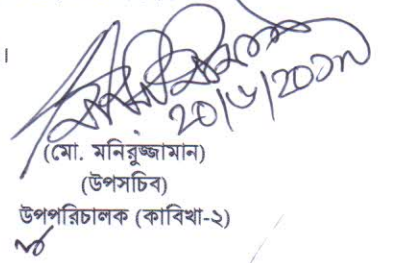 ।
২০/৬/২০১৭
(মো. মনিরুজ্জামান)
(উপসচিব)
উপপরিচালক (কাবিখা-২)